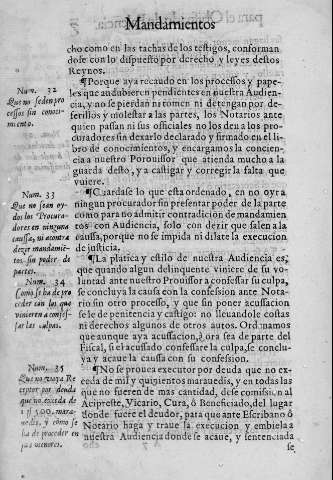 Mandamientos
cho como en las tachas de los testigos, conforman
dose con lo dispuesto por derecho y leyes destos
Reynos.
Num. 32
Que no se den pro
cessos sin conoci-
miento.
¶Porque aya recaudo en los processos y pape
les que audubieren pendientes en nuestra Audien
cia, y no se pierdan ni tomen ni detengan por de-
ferillos y molestar a las partes, los Notarios ante
quien passan ni sus officiales no los den a los pro-
curadores sin dexarlo declarado y firmado en el li-
bro de conocimientos, y encargamos la concien-
cia a nuestro Porouissor que atienda mucho a la
guarda desto, y a castigar y corregir la falta que
vuiere.
Num. 33
Que no sean oy
dos los Procura-
dores en ninguna
causa, ni a contra
dezir mandamie-
tos sin poder de
partes.
¶Guardase lo que esta ordenado, en no oyr a
ningun procurador sin presentar poder de la parte
como para no admitir contradicion de mandamien
tos con Audiencia, solo con dezir que salen a la
caussa, porque no se impida ni dilate la execucion
de justicia.
Num. 34
Como se ha de pro
ceder con los que
vinieren a confes-
sar las culpas.
¶La platica y estilo de nuestra Audiencia es,
que quando algun delinquente viniere de su vo-
luntad ante nuestro Prouissor a confessar su culpa,
se concluya la causa con la confession ante Nota-
rio sin otro processo, y que sin poner acussacion
se le de penitencia y castigo: no lleuandole costas
ni derechos algunos de otros autos. Ordenamos
que aunque aya acussacion, ora sea de parte del
Fiscal, si el acussado confessare la culpa, se conclu-
ya y acaue la caussa con su confession.
Num. 35
Que no vaya Re
ceptor por deuda
que no exceda de
1 ∬ 500. mara-
uedis, y como se
ha de proceder en
las menores.
¶No se prouea executor por deuda que no ex-
ceda de mil y quinientos marauedis, y en todas las
que no fueren de mas cantidad, dese comission al
Acipreste, Vicario, Cura, ô Beneficiado, del lugar
donde fuere el deudor, para que ante Escribano ô
Notario haga y traue la execucion y embiela a
nuestra Audiencia donde se acaue, y sentenciada
se